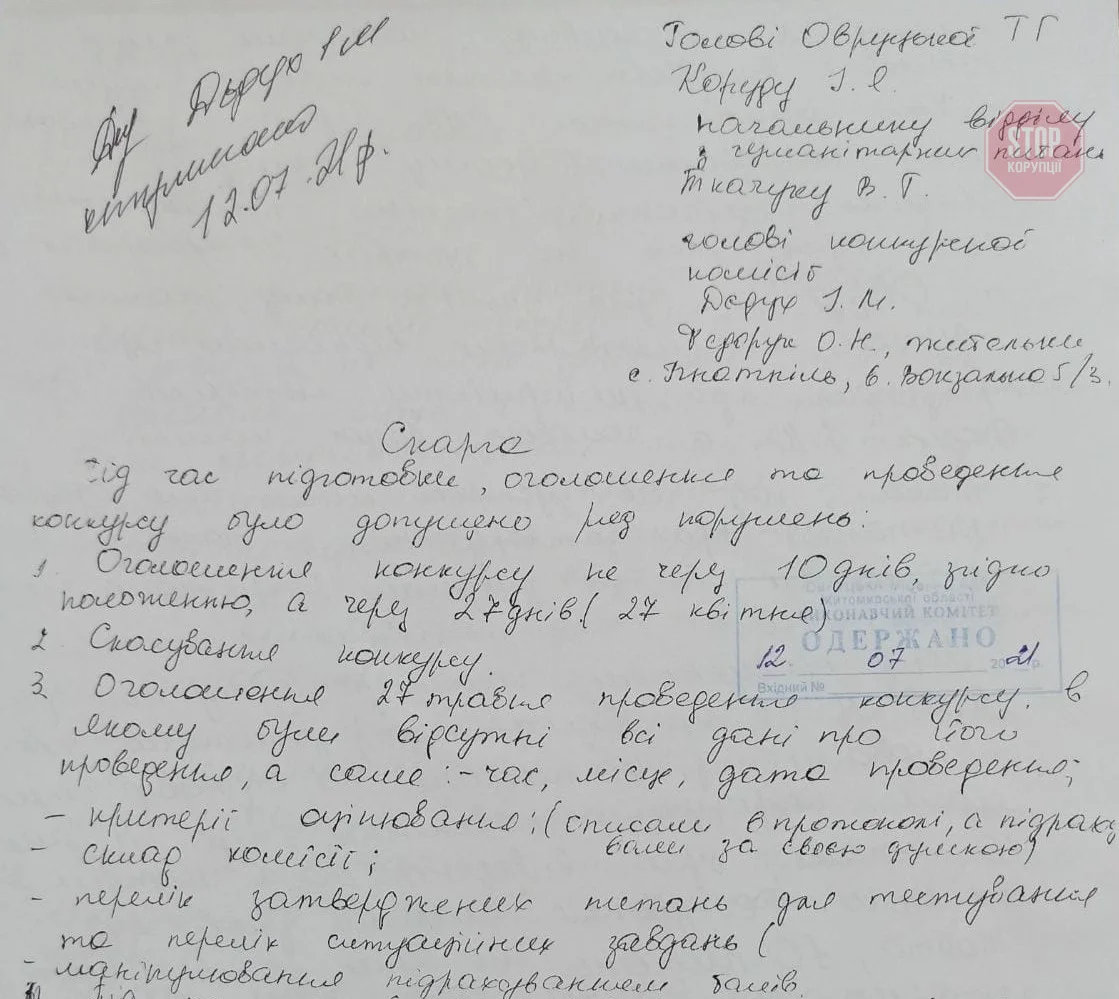 Дедух І М
отримано
12.07.21р.
Голові Овруцької ТГ
Коруду І. Я.
начальнику відділу
з гуманітарних питань
Ткачуку В. Г.
голові конкурсної
комісії
Дєдух І. М.
Федорук О. Н., жительки
с. Ігнатпіль, в. Вокзальна 5/3.
STOP
КОРУПЦІЇ
Скарга
Під час підготовки, оголошення та проведення
конкурсу було допущено ряд порушень:
1. Оголошення конкурсу не через 10 днів, згідно
положенню, а через 27 днів. (27 квітня)
2. Скасування конкурсу.
3. Оголошення 27 травня проведення конкурсу, в
якому були відсутні всі дані про його
проведення, а саме: - час, місце, дата проведення;
- критерії оцінювання; (списали в протоколі, а підраху
вали за своєю думкою)
- склад комісії;
- перелік затверджених питань для тестування
та перелік ситуаційних завдань (
- маніпулювання підрахуванням балів.
Житомирської області
ВИКОНАВЧИЙ КОМІТЕТ
ОДЕРЖАНО
12. 07 2021р.
Вхідний №